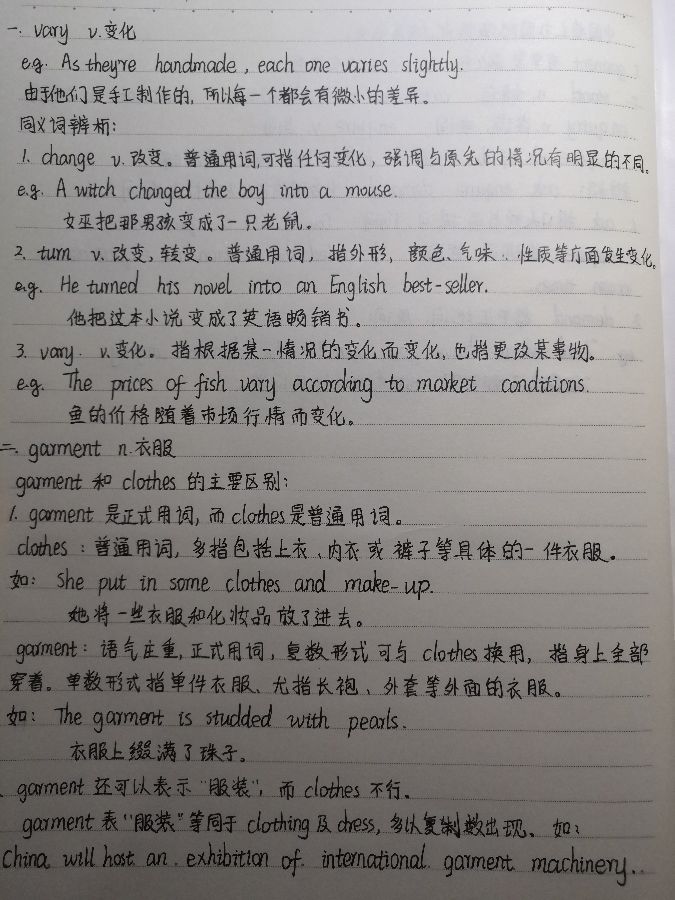 一. vary v.变化
e.g. As they're handmade, each one varies slightly.
由于他们是手工制作的, 所以每一个都会有微小的差异。
同义词辨析:
1. change v.改变。普通用词,可指任何变化, 强调与原先的情况有明显的不同。
e.g. A witch changed the boy into a mouse.
女巫把那男孩变成了一只老鼠。
2. turn v.改变, 转变。普通用词, 指外形, 颜色、气味、性质等方面发生变化。
e.g. He turned his novel into an English best-seller.
他把这本小说变成了英语畅销书。
3. vary. v.变化。指根据某一情况的变化而变化, 也指更改某事物。
e.g. The prices of fish vary according to market conditions.
鱼的价格随着市场行情而变化。
二. garment n.衣服
garment 和 clothes 的主要区别:
1. garment 是正式用词, 而 clothes 是普通用词。
clothes : 普通用词, 多指包括上衣、内衣或裤子等具体的一件衣服。
如: She put in some clothes and make-up.
她将一些衣服和化妆品放了进去。
garment: 语气庄重, 正式用词, 复数形式可与 clothes 换用, 指身上全部
穿着。单数形式指单件衣服、尤指长袍、外套等外面的衣服。
如: The garment is studded with pearls.
衣服上缀满了珠子。
garment 还可以表示"服装", 而 clothes 不行。
garment 表"服装"等同于 clothing 及 dress, 多以复数出现。如:
China will host an exhibition of international garment machinery.